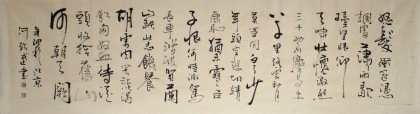 怒髮衝冠憑
欄處瀟瀟雨歇
擡望眼仰
天長嘯壯懷激烈
三十功名塵與土
八千里路雲和月
莫等閒白了少
年頭空悲切靖
康恥猶未雪臣
子恨何時滅駕
長車踏破賀蘭
山缺壯志飢餐
胡虜肉笑談渴
飲匈奴血待從
頭收拾舊山
河朝天闕
北京
書